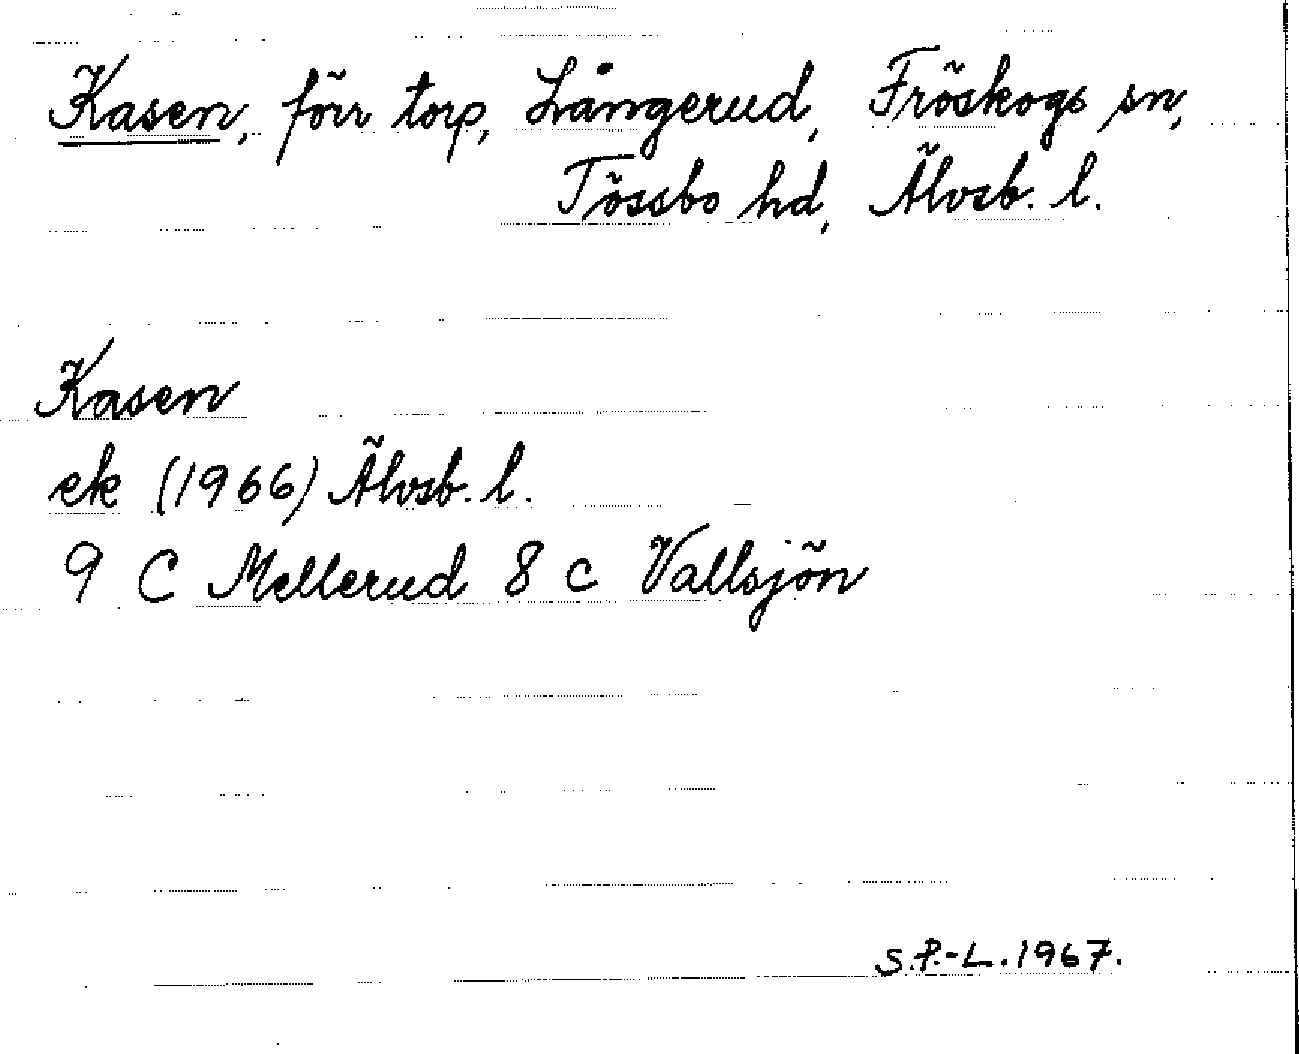 Kasen, förr torp, Långerud, Fröskogs sn,
Tössbo hd, Älvsb. l.
Kasen
ek (1966) Älvsb. l.
9 C Mellerud 8 c Vallsjön
S.P.-L. 1967.